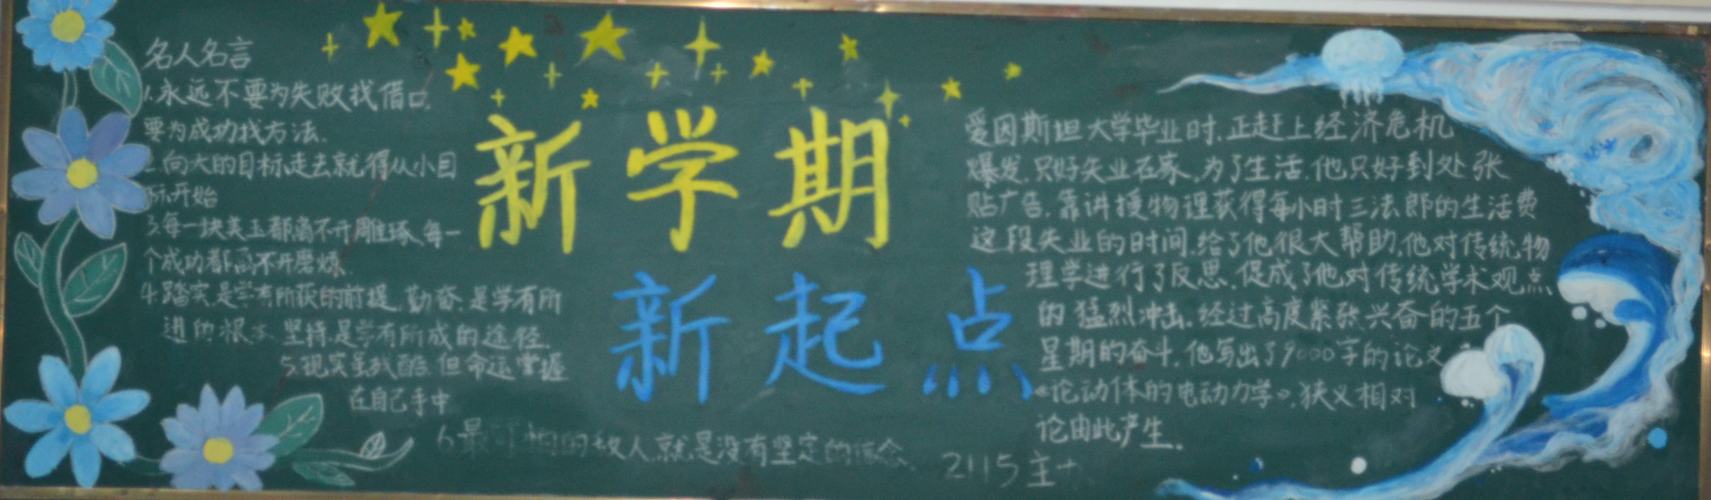 名人名言
1.永远不要为失败找借口,
要为成功找方法.
2.向大的目标走去就得从小目
标开始
3.每一块美玉都离不开雕琢,每一
个成功都离不开磨炼.
4.踏实,是学有所获的前提,勤奋,是学有所
进的根本,坚持,是学有所成的途径.
5.现实虽残酷,但命运掌握
在自己手中
6.最可怕的敌人,就是没有坚定的信念.
新学期
新起点
爱因斯坦大学毕业时,正赶上经济危机
爆发,只好失业在家,为了生活,他只好到处张
贴广告,靠讲授物理获得每小时三法郎的生活费
这段失业的时间,给了他很大帮助,他对传统物
理学进行了反思,促成了他对传统学术观点
的猛烈冲击,经过高度紧张兴奋的五个
星期的奋斗,他写出了9000字的论文
《论动体的电动力学》,狭义相对
论由此产生.
2115宣